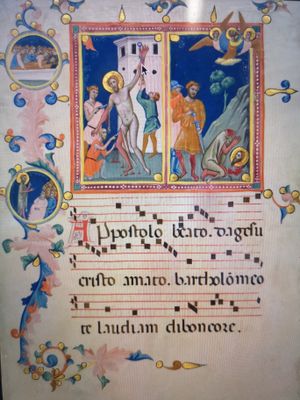 Appostolo beato. dagesu
cristo amato. bartholômeo
te laudiam diboncore.